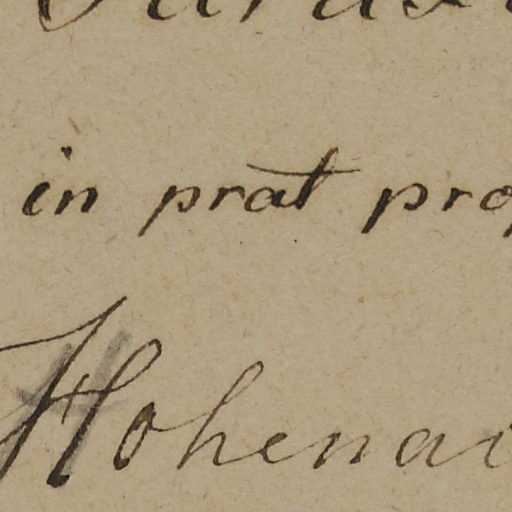 in prat prop
Hohenai